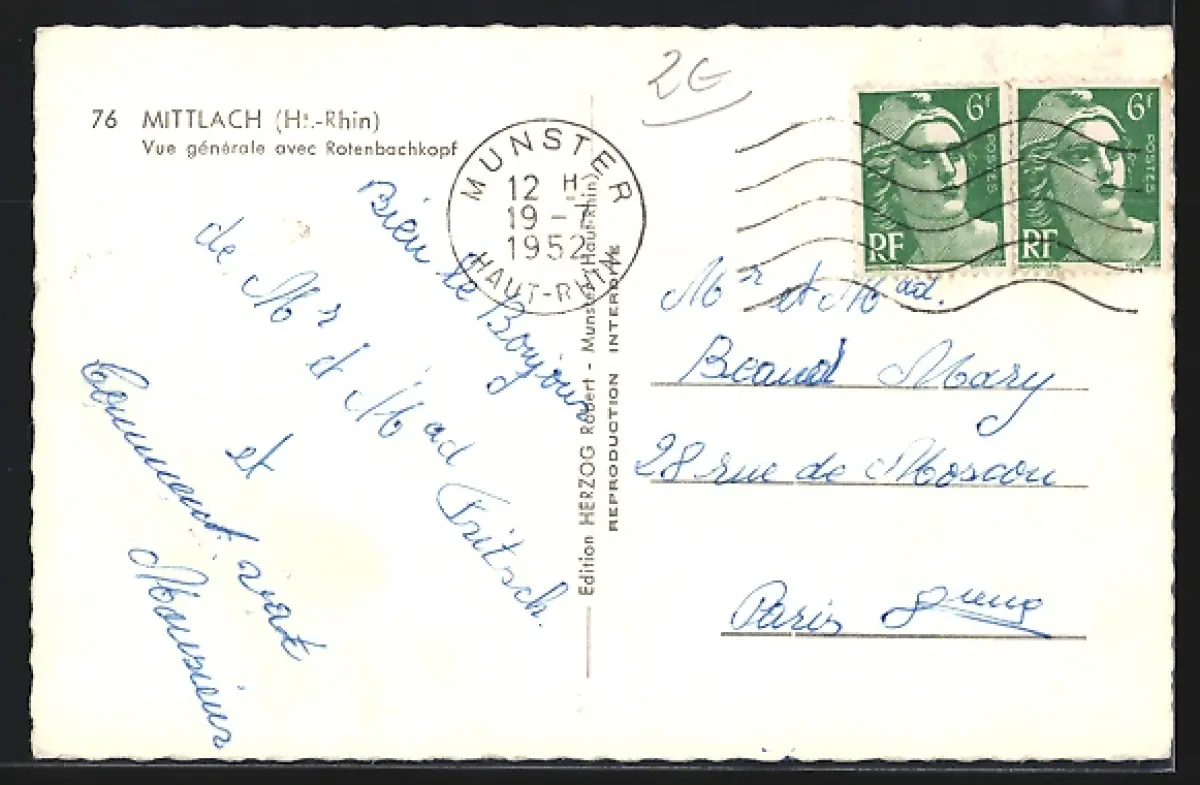 76 MITTLACH (Ht.-Rhin)
Vue générale avec Rotenbachkopf
Bien le Bonjour
de Mr et Mad Fritsch.
et
Comment vat
Monsieur
MUNSTER
12 H
19 - 7
1952
HAUT-RHIN
Edition HERZOG Robert - Munster (Haut-Rhin)
REPRODUCTION INTERDITE
2G
6f
POSTES
RF
6f
POSTES
RF
Mr et Mad.
Beaud Mary
28 rue de Moscou
Paris 8ieme